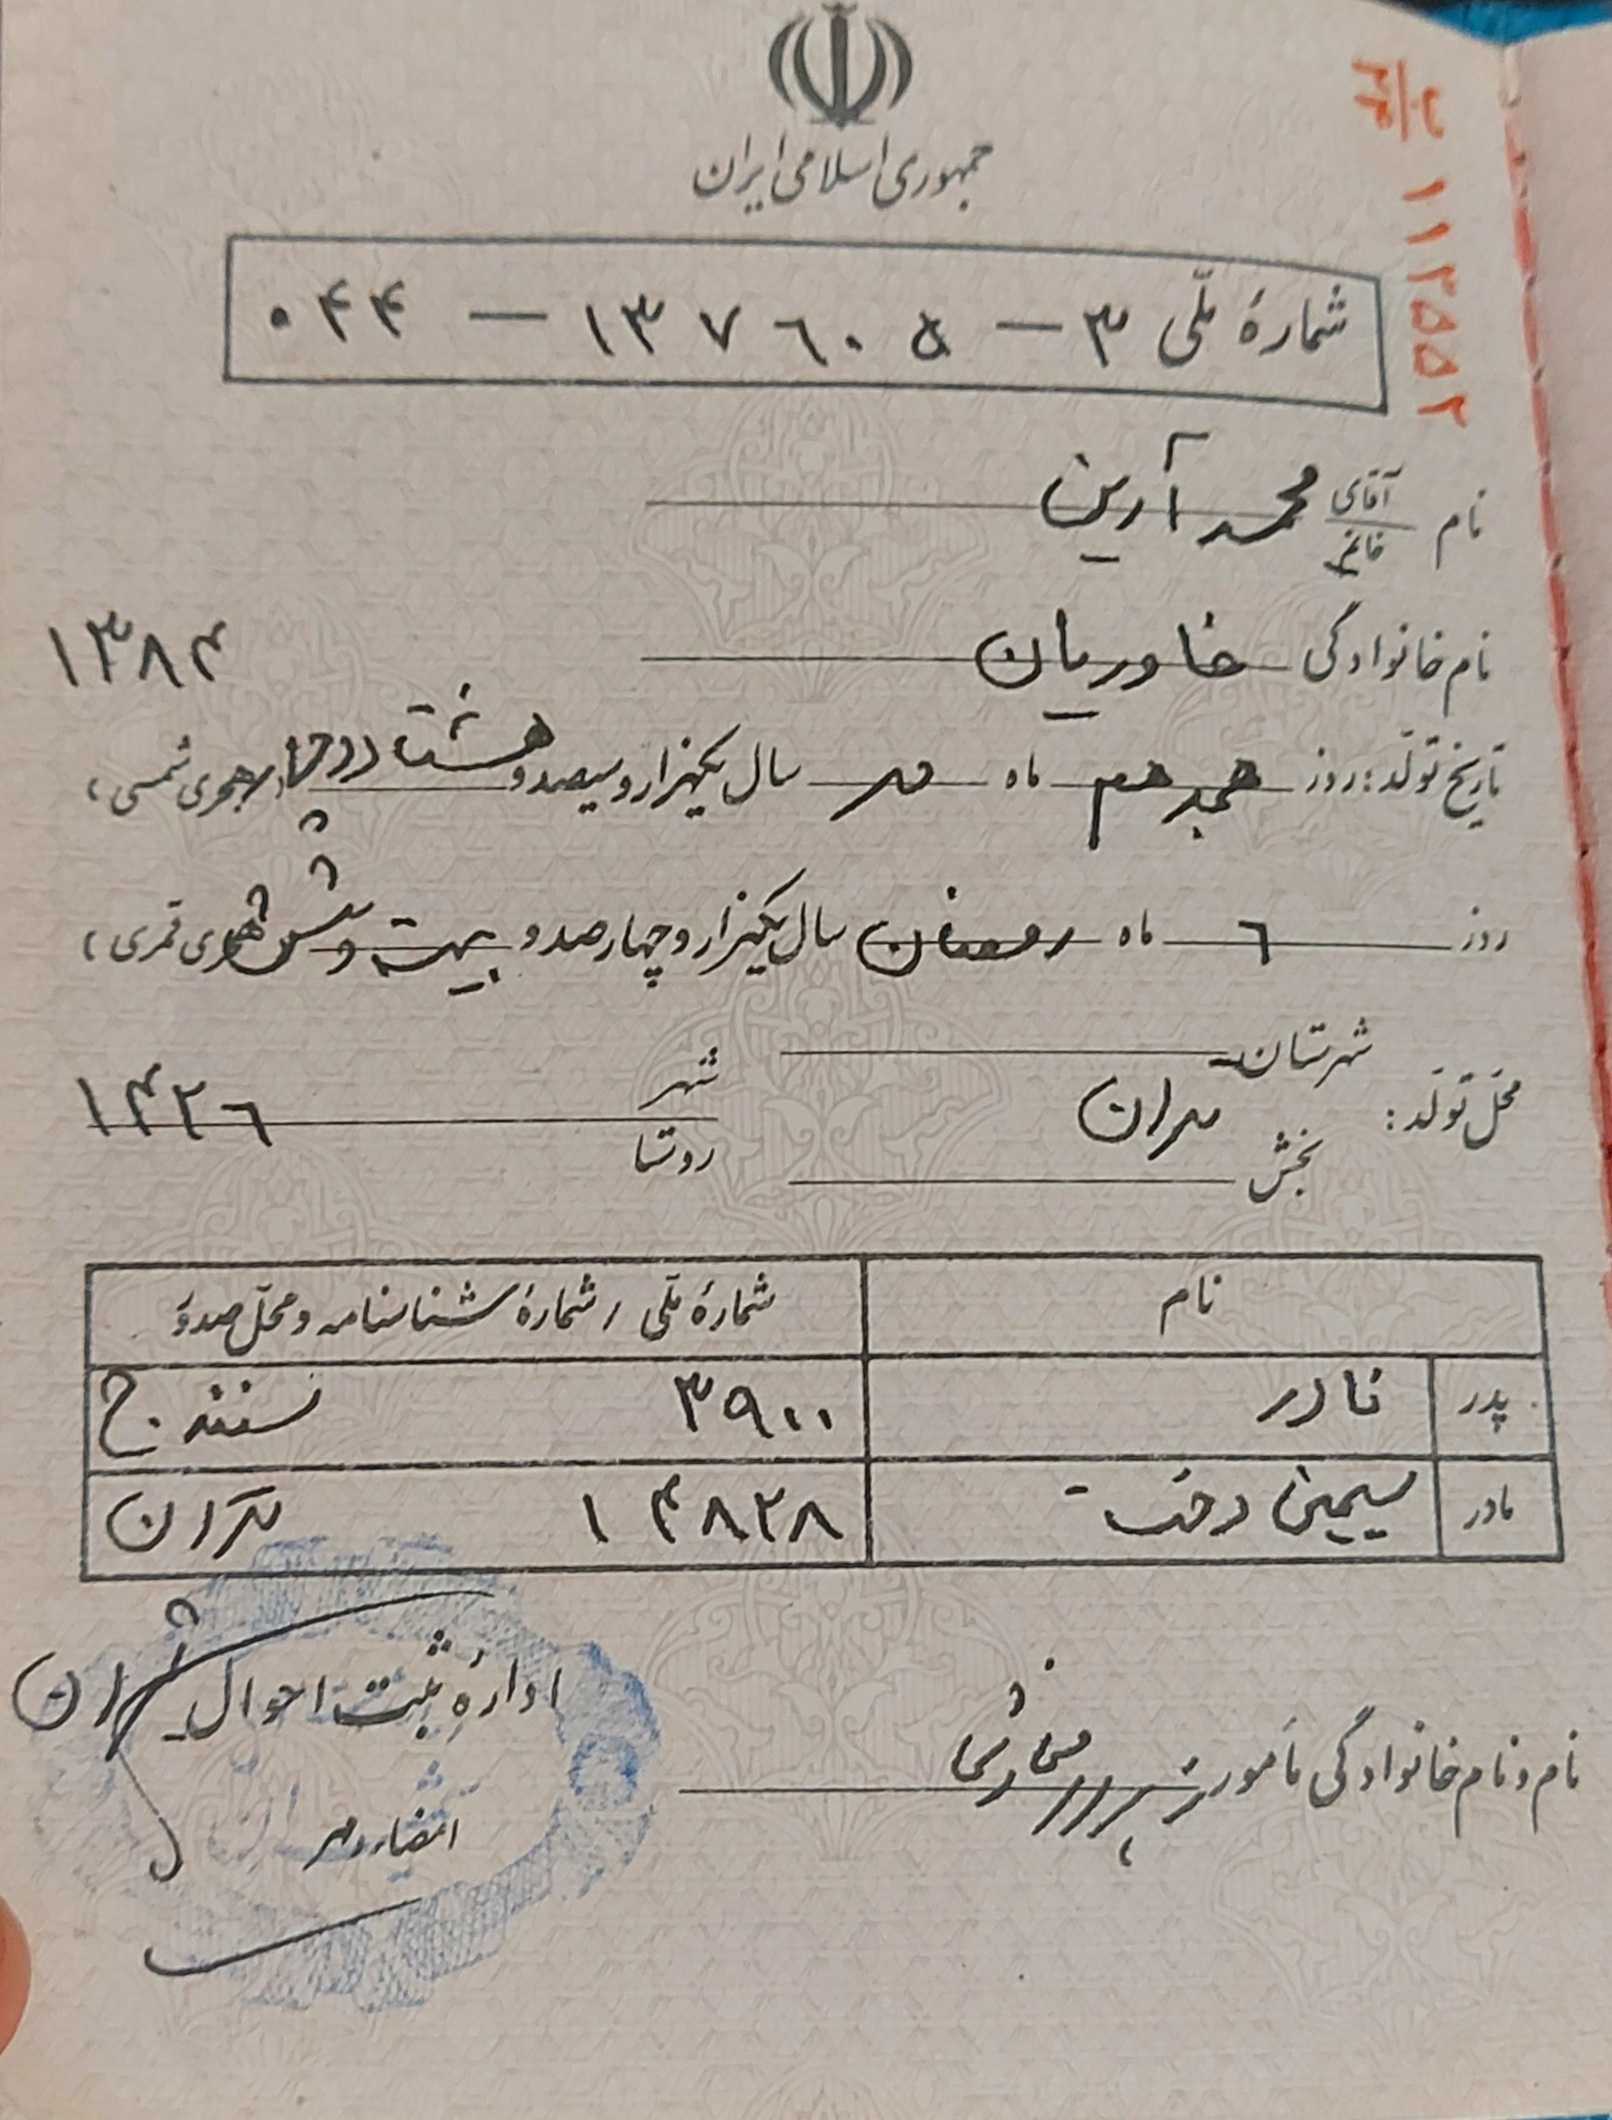 جمهوری اسلامی ایران
۲۰/۴۴
۱۱۲۵۵۲
شمارهٔ ملّی ۳ — ۱۳۷۶۰۵ — ۰۴۴
نام آقای / خانم محمد آرین
نام خانوادگی خاوریان
۱۳۸۴
تاریخ تولّد: روز هیجدهم ماه مهر سال یکهزار و سیصد و هشتاد و چهار هجری شمسی،
روز ۶ ماه رمضان سال یکهزار و چهارصد و بیست و شش هجری قمری،
محل تولّد: شهرستان تهران بخش
شهر روستا ۱۴۲۶
نام شمارهٔ ملّی / شمارهٔ شناسنامه و محلّ صدور
پدر نادر ۳۹۰۰ سنندج
مادر سیمین دخت ۱۴۸۲۸ تهران
نام و نام خانوادگی مأمور
ادارهٔ ثبت احوال شمیران
امضاء و مهر